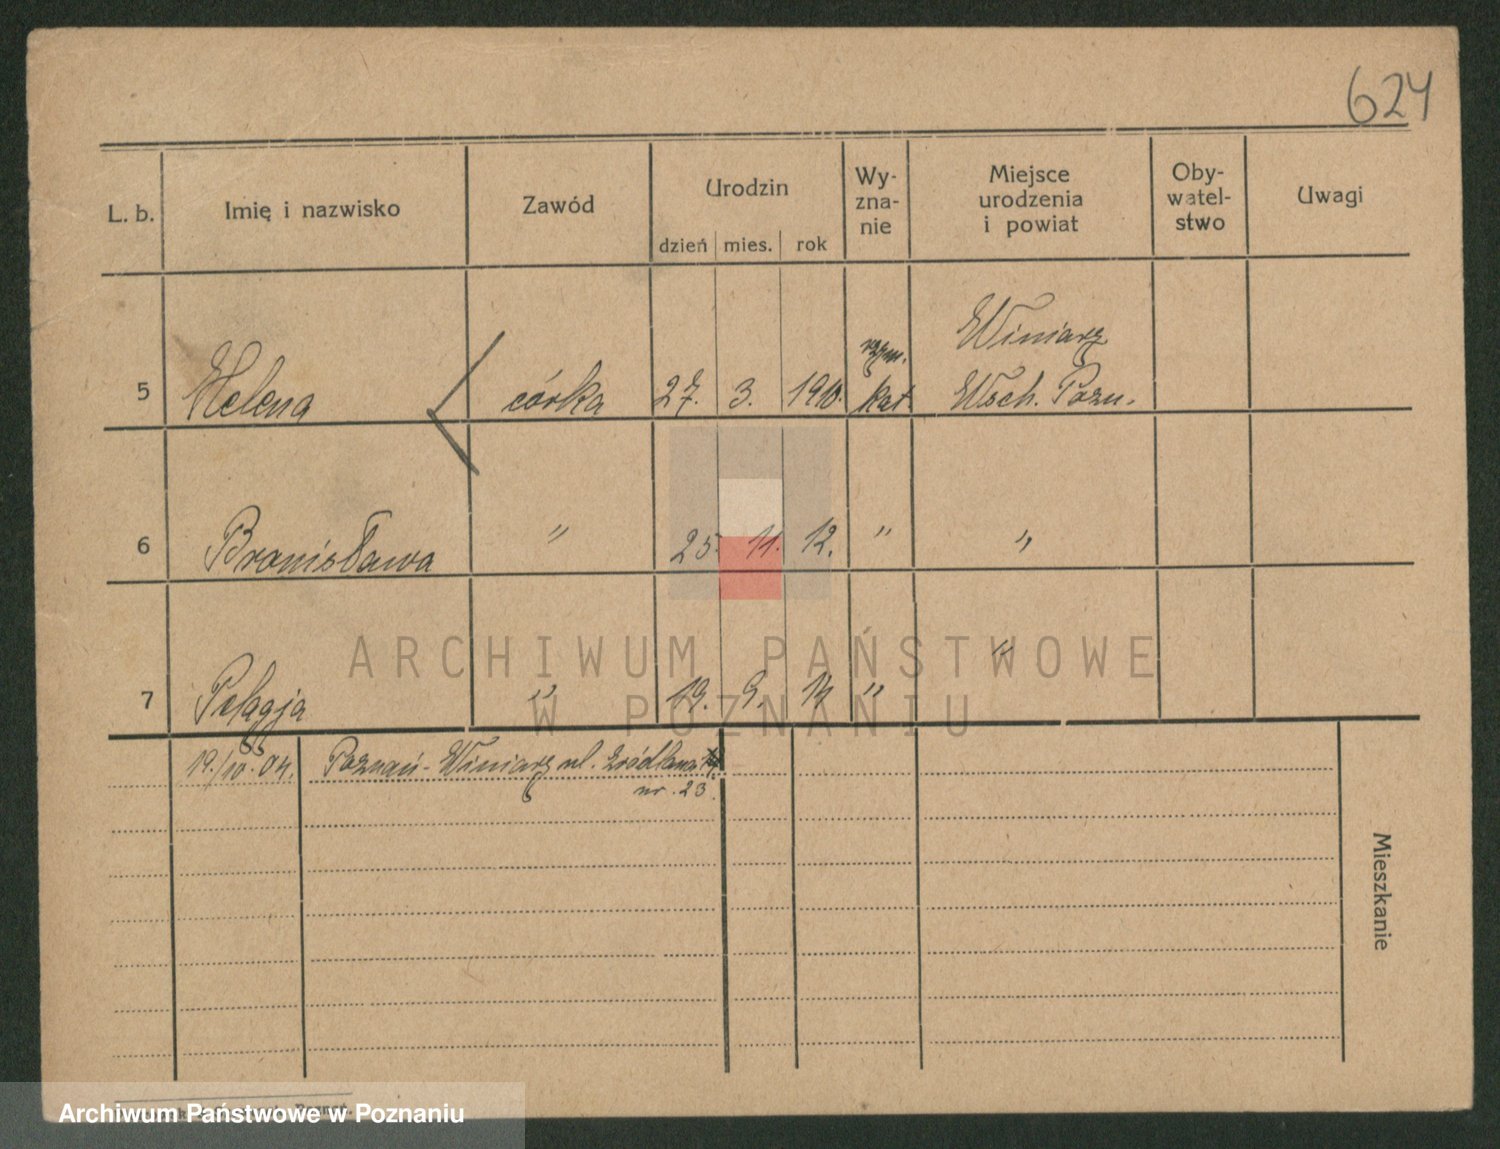 624
L. b. Imię i nazwisko Zawód Urodzin Wy- zna- nie Miejsce urodzenia i powiat Oby- watel- stwo Uwagi
dzień mies. rok
Winiary
rzym.
5 Helena córka 27. 3. 1910. kat. Wsch. Pozn.
6 Bronisława " 25. 11. 12. " "
7 Pelagja " 19. 9. 14 " "
19./10. 04. Poznań-Winiary ul. Źródlana
nr. 23.
Mieszkanie
ARCHIWUM PAŃSTWOWE
W POZNANIU
Archiwum Państwowe w Poznaniu